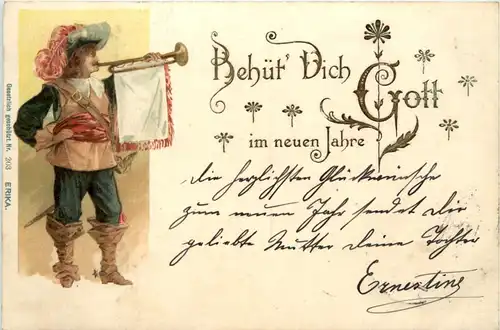 Behüt' Dich Gott
im neuen Jahre
Die herzlichsten Glückwünsche
zum neuen Jahr sendet Dir
geliebte Mutter deine Tochter
Ernestine
Gesetzlich geschützt Nr. 203 ERIKA.